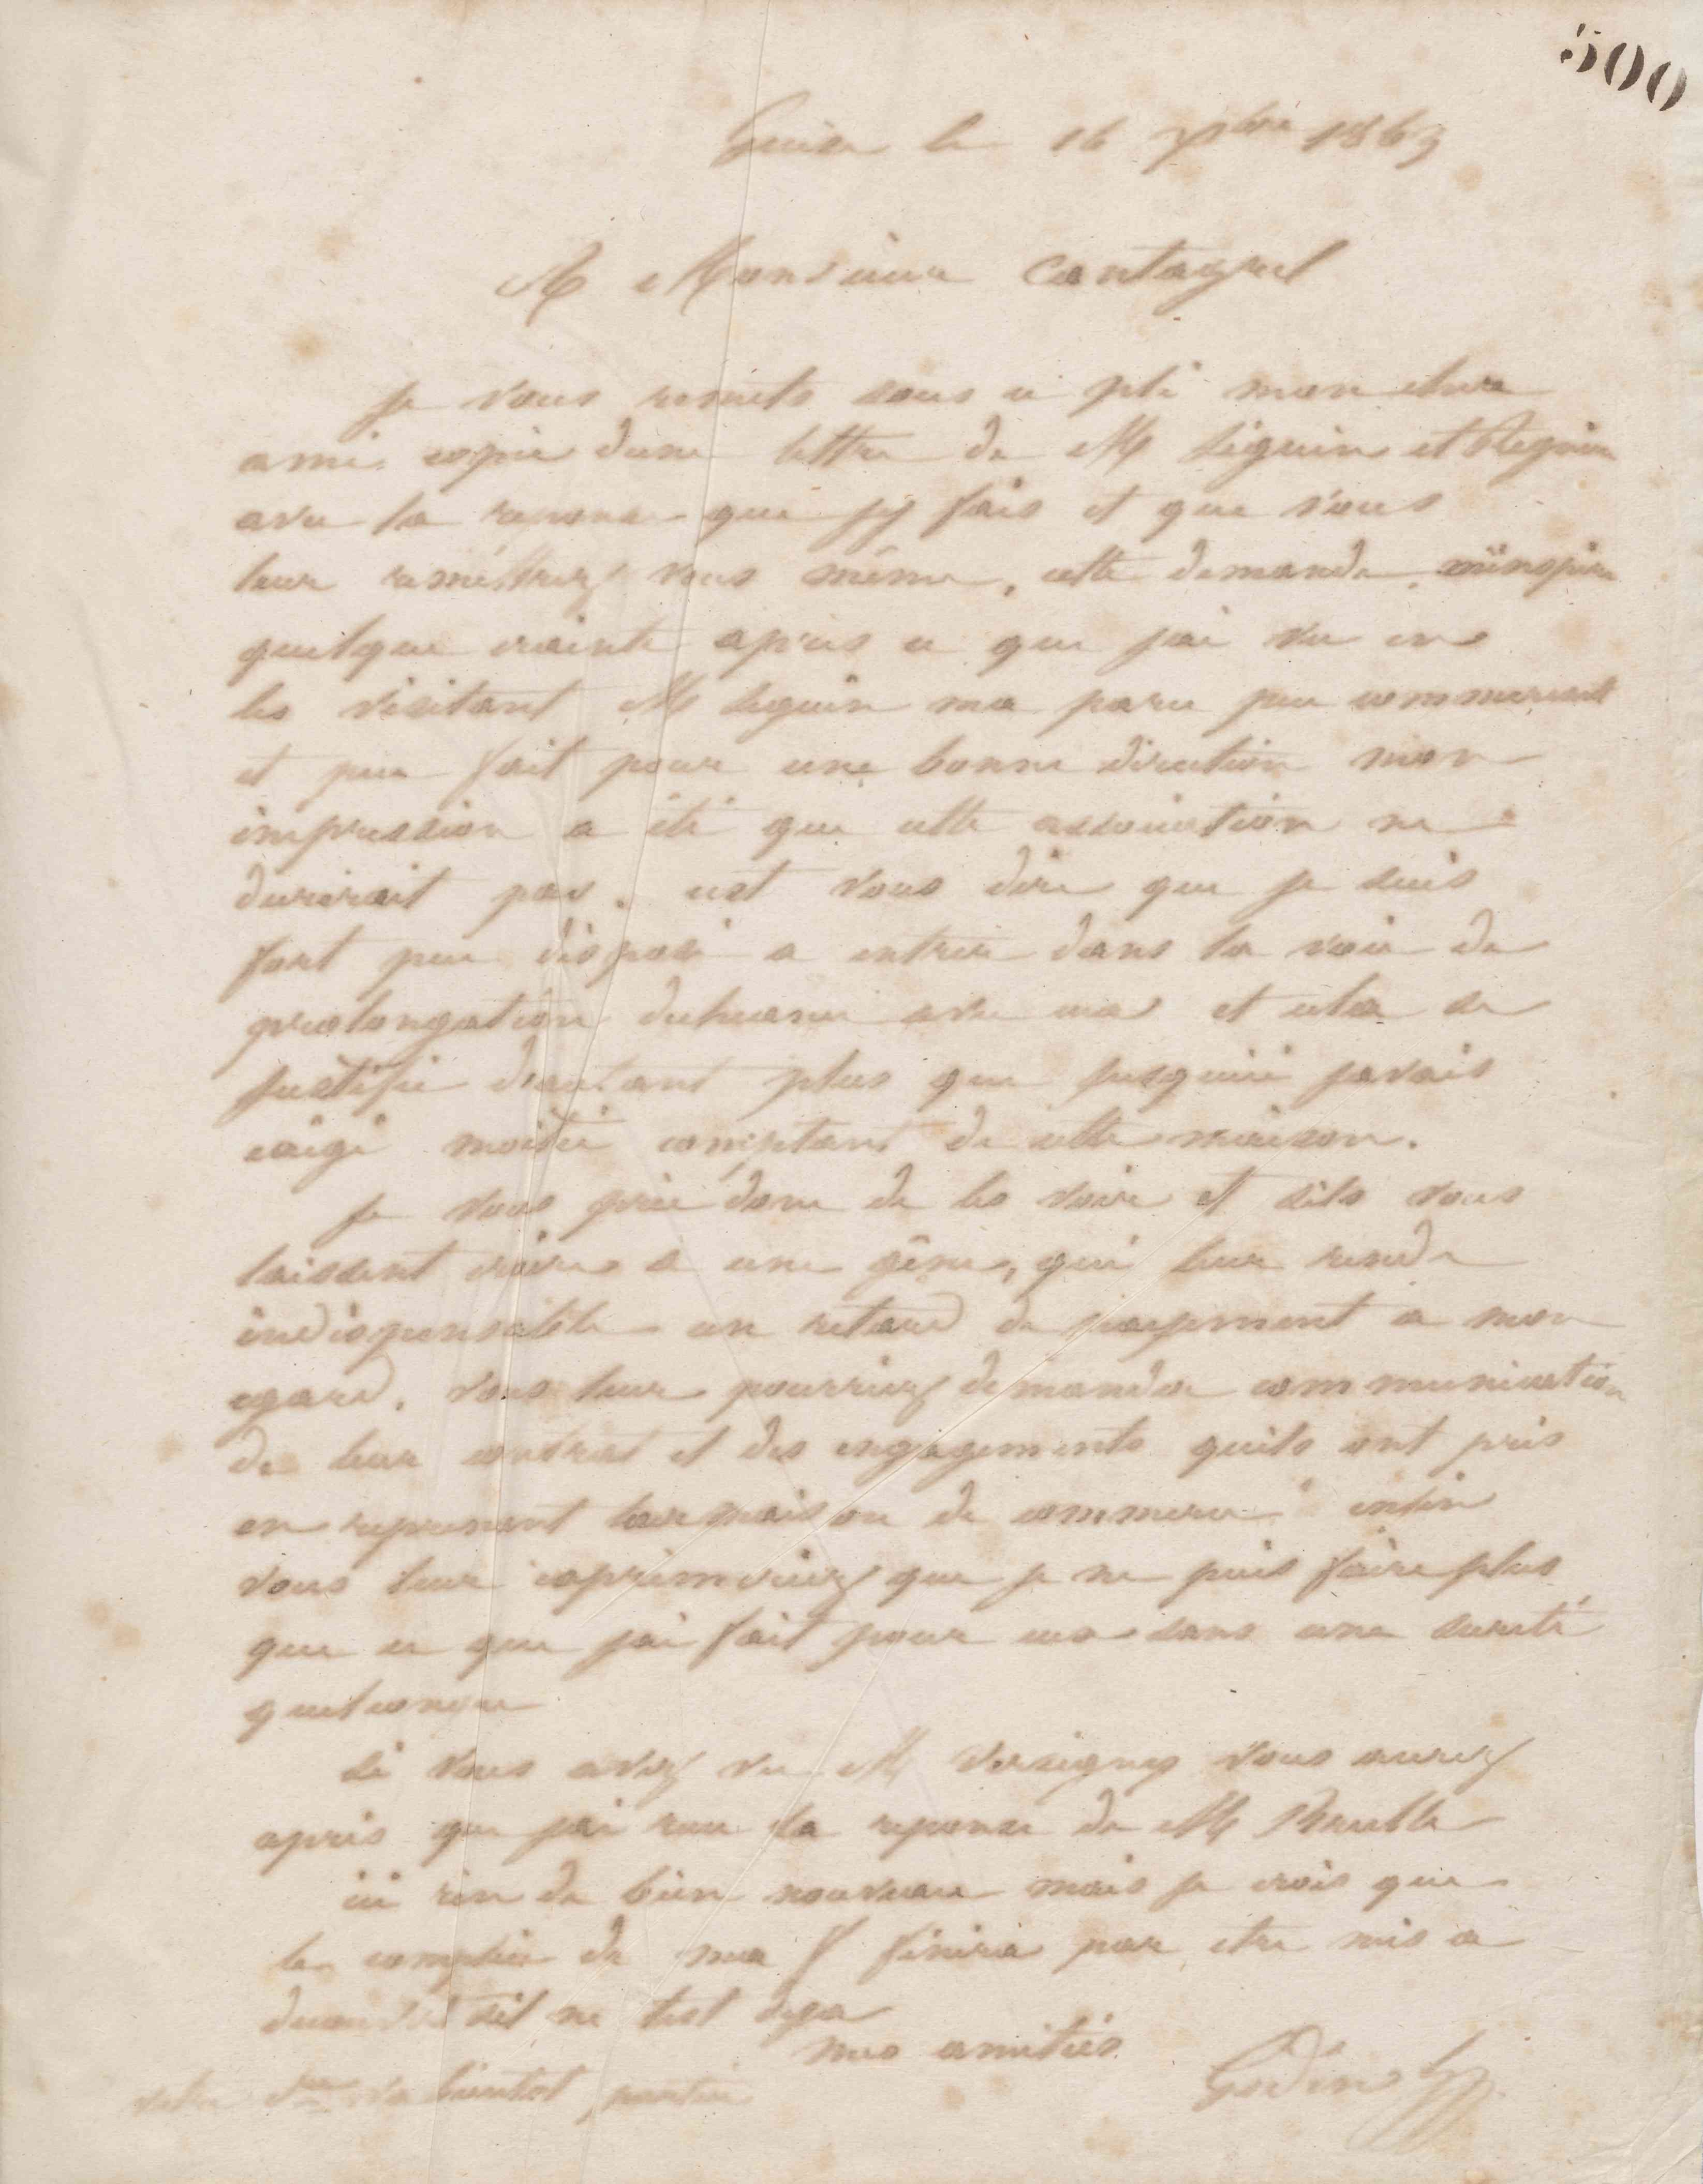 500
Guise le 16 Xbre 1863
A Monsieur Cantagrel
Je vous remets sous ce pli mon cher
ami copie dune lettre de M Seguin et
avec la reponse que jy fais et que vous
leur remettrez vous même, cette demande minspire
quelque crainte apres ce que jai vu en
les visitant M Seguin ma paru peu commercant
et peu fait pour une bonne direction mon
impression a été que cette association ne
durerait pas. cest vous dire que je suis
fort peu disposé a entrer dans la voie de
prolongation decheance avec eux et cela se
justifie dautant plus que jusquici javais
exigé moitié comptant de cette maison.
je vous prie donc de les voir et sils vous
laissent croire a une gêne, qui leur rende
indispensable un retard de payement a mon
egard. vous leur pourriez demander communication
de leur contrat et des engagements quils ont pris
en reprenant leur maison de commerce enfin
vous leur exprimeriez que je ne puis faire plus
que ce que jai fait pour eux sans une sureté
quelconque
Si vous avez vu M Versigny vous aurez
apris que jai recu la reponse de M
ici rien de bien nouveau mais je crois que
le de ma f finira par etre mis a
sil ne lest deja
mes amitiés
Godin
votre va bientot partir